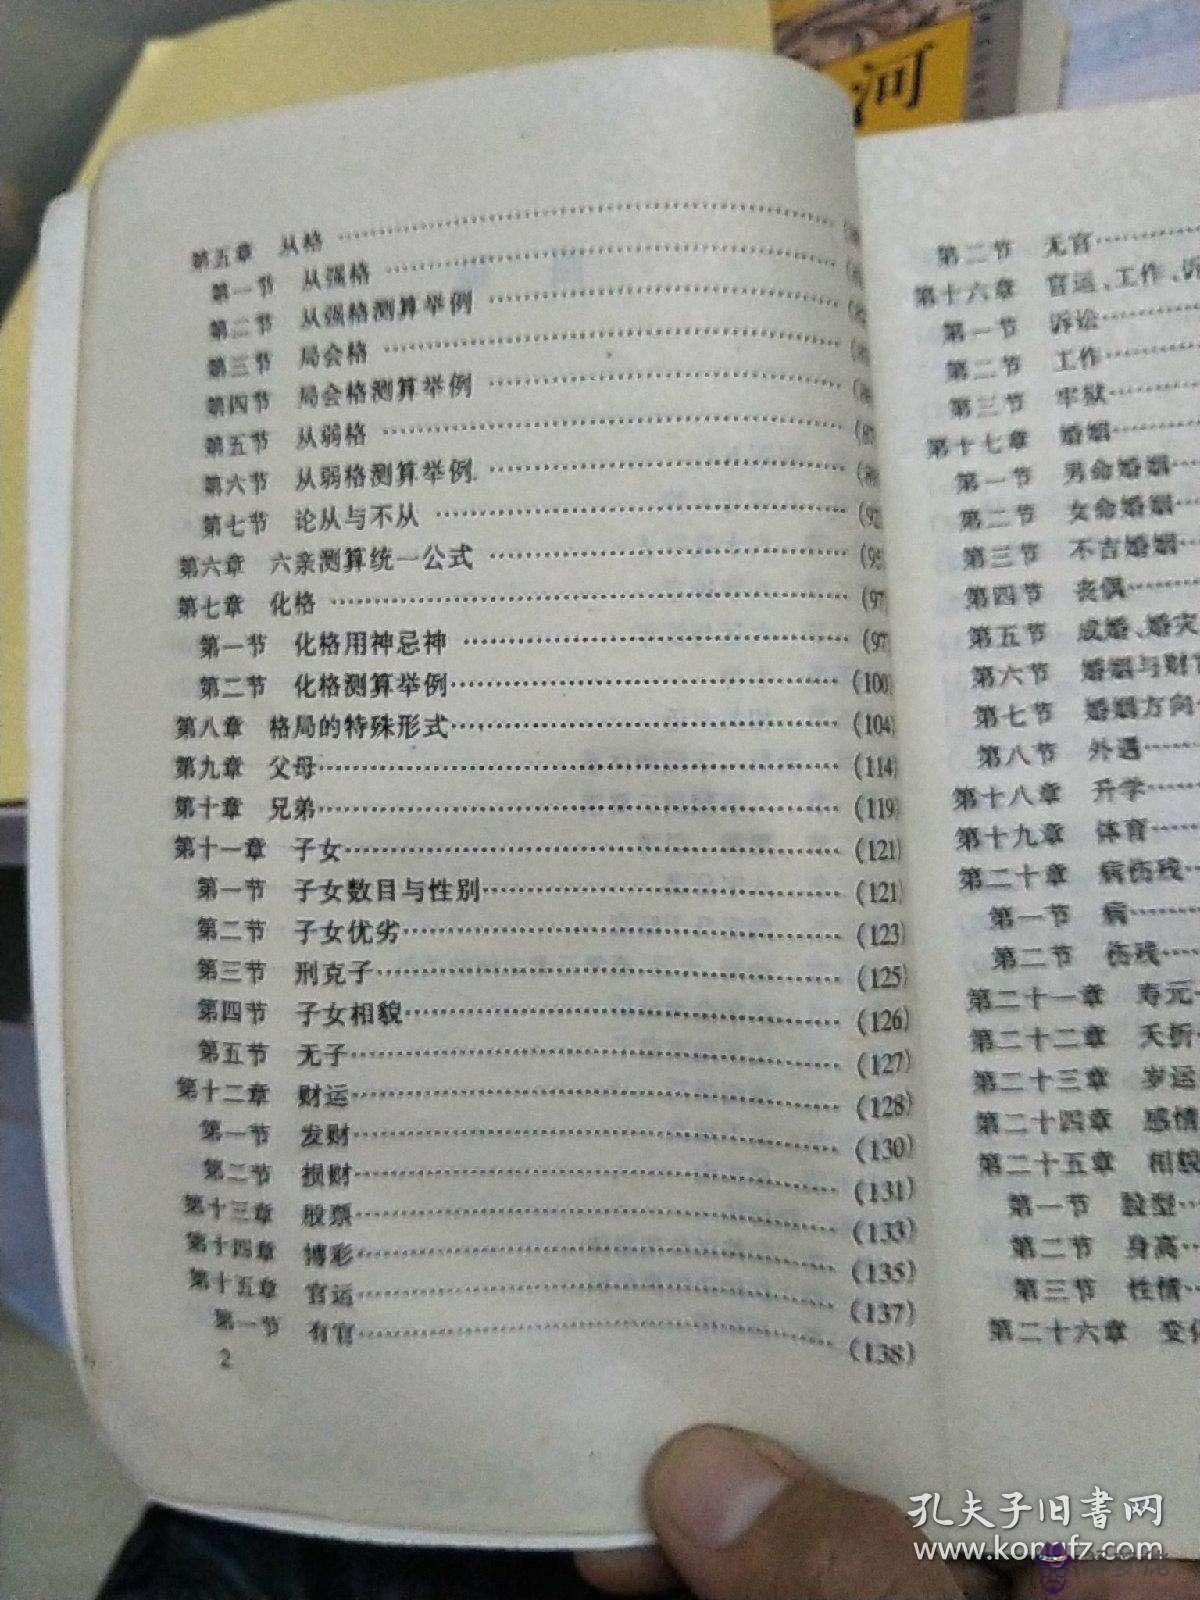 河
第五章 从格
第一节 从强格
第二节 从强格测算举例
第三节 局会格
第四节 局会格测算举例
第五节 从弱格
第六节 从弱格测算举例
第七节 论从与不从 (92
第六章 六亲测算统一公式 (95
第七章 化格 (97
第一节 化格用神忌神 (97
第二节 化格测算举例 (100)
第八章 格局的特殊形式 (104)
第九章 父母 (114)
第十章 兄弟 (119)
第十一章 子女 (121)
第一节 子女数目与性别 (121)
第二节 子女优劣 (123)
第三节 刑克子 (125)
第四节 子女相貌 (126)
第五节 无子 (127)
第十二章 财运 (128)
第一节 发财 (130)
第二节 损财 (131)
第十三章 股票 (133)
第十四章 博彩 (135)
第十五章 官运 (137)
第一节 有官 (138)
2
第二节 无官
第十六章 官运、工作、诉
第一节 诉讼
第二节 工作
第三节 牢狱
第十七章 婚姻
第一节 男命婚姻
第二节 女命婚姻
第三节 不吉婚姻
第四节 丧偶
第五节 成婚、婚灾
第六节 婚姻与财
第七节 婚姻方向
第八节 外遇
第十八章 升学
第十九章 体育
第二十章 病伤残
第一节 病
第二节 伤残
第二十一章 寿元
第二十二章 夭折
第二十三章 岁运
第二十四章 感情
第二十五章 相貌
第一节 脸型
第二节 身高
第三节 性情
第二十六章 变
孔夫子旧书网
www.kongfz.com